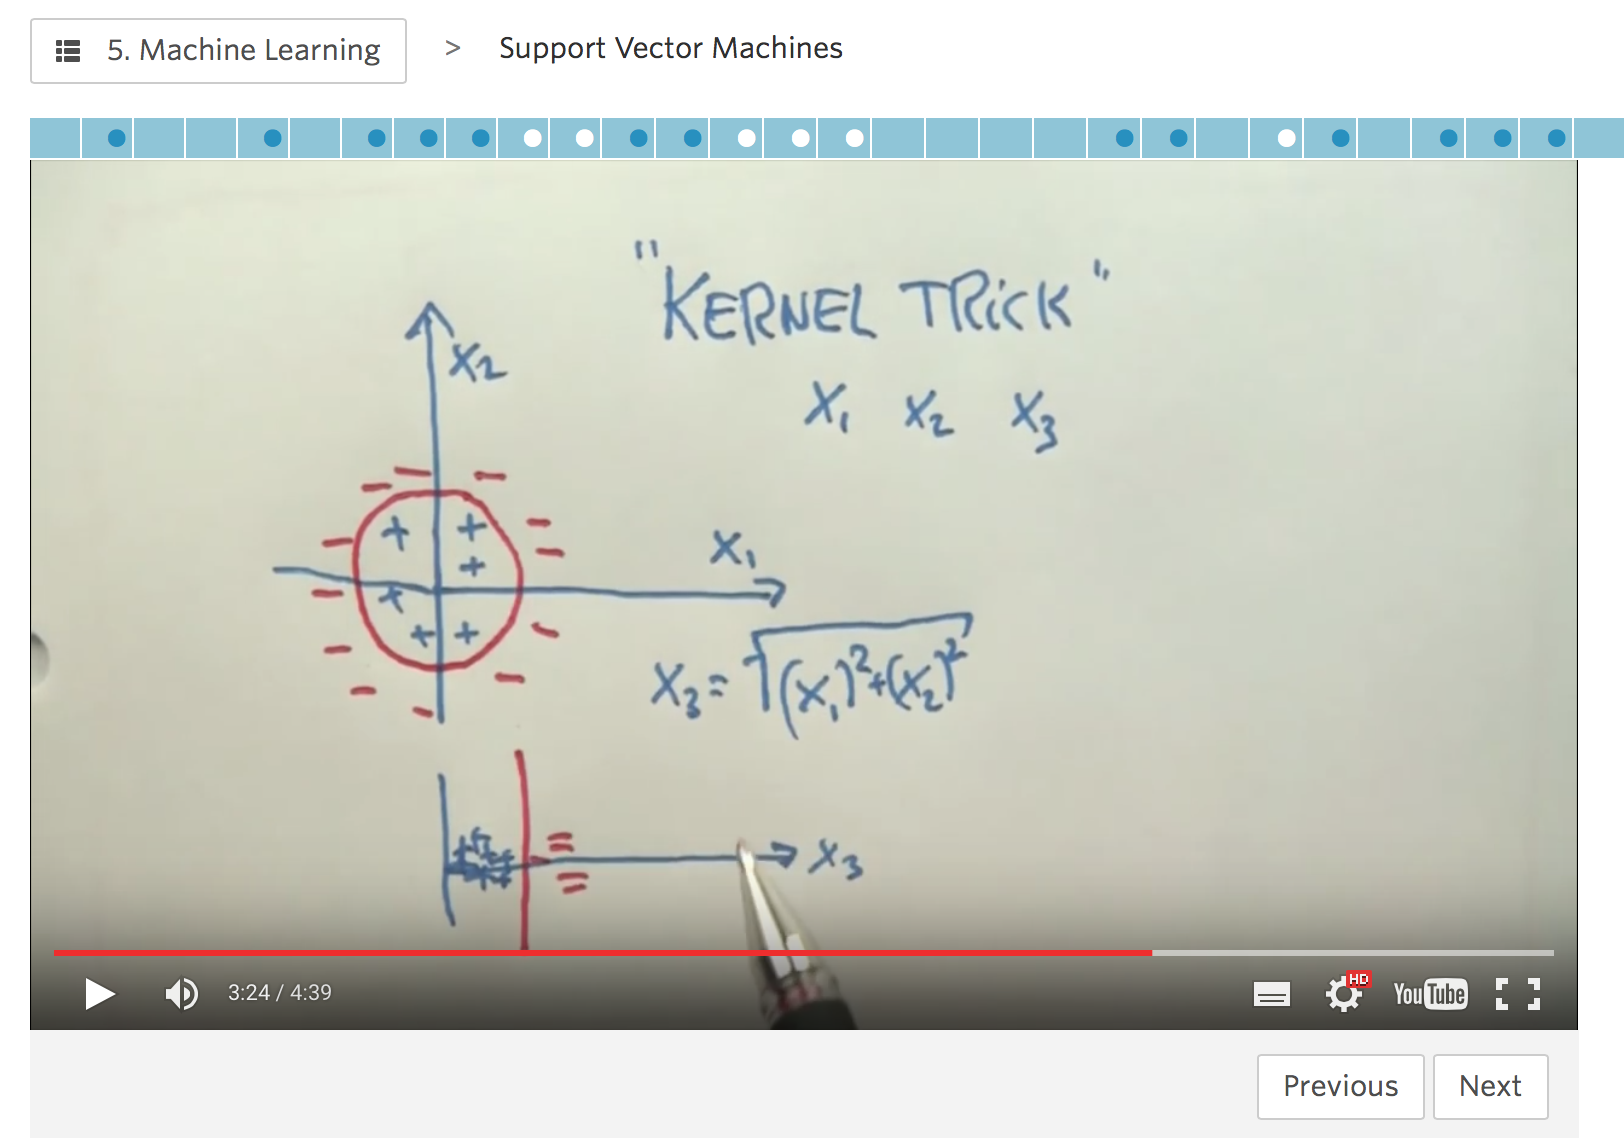 5. Machine Learning > Support Vector Machines
"KERNEL TRICK"
X₁ X₂ X₃
X₂
+ +
+
+
+ +
X₁
X₃ = √(X₁)²+(X₂)²
X₃
3:24 / 4:39
HD
YouTube
Previous
Next